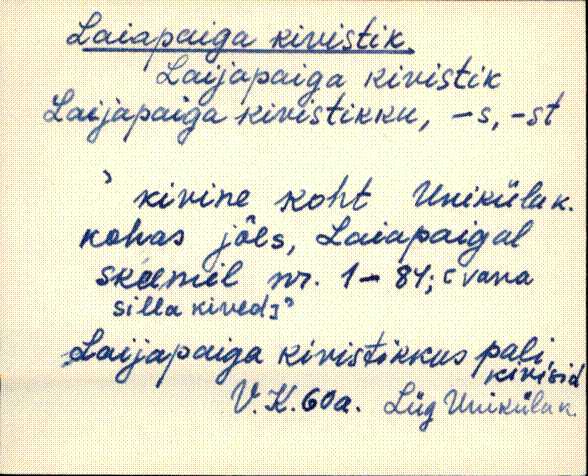 Laiapaiga kivistik.
Laijapaiga kivistik
Laijapaiga kivistikku, -s, -st
' kivine koht Uniküla k.
kohas jões, Laiapaigal
skeemil nr. 1-84; [vana
silla kived]'
Laijapaiga kivistikkus pali
kivisid
V.K. 60a. Lüg Uniküla k.